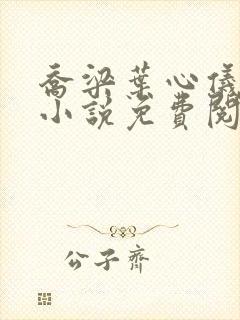 乔梁葉心儀
小說免費閱
公子齊